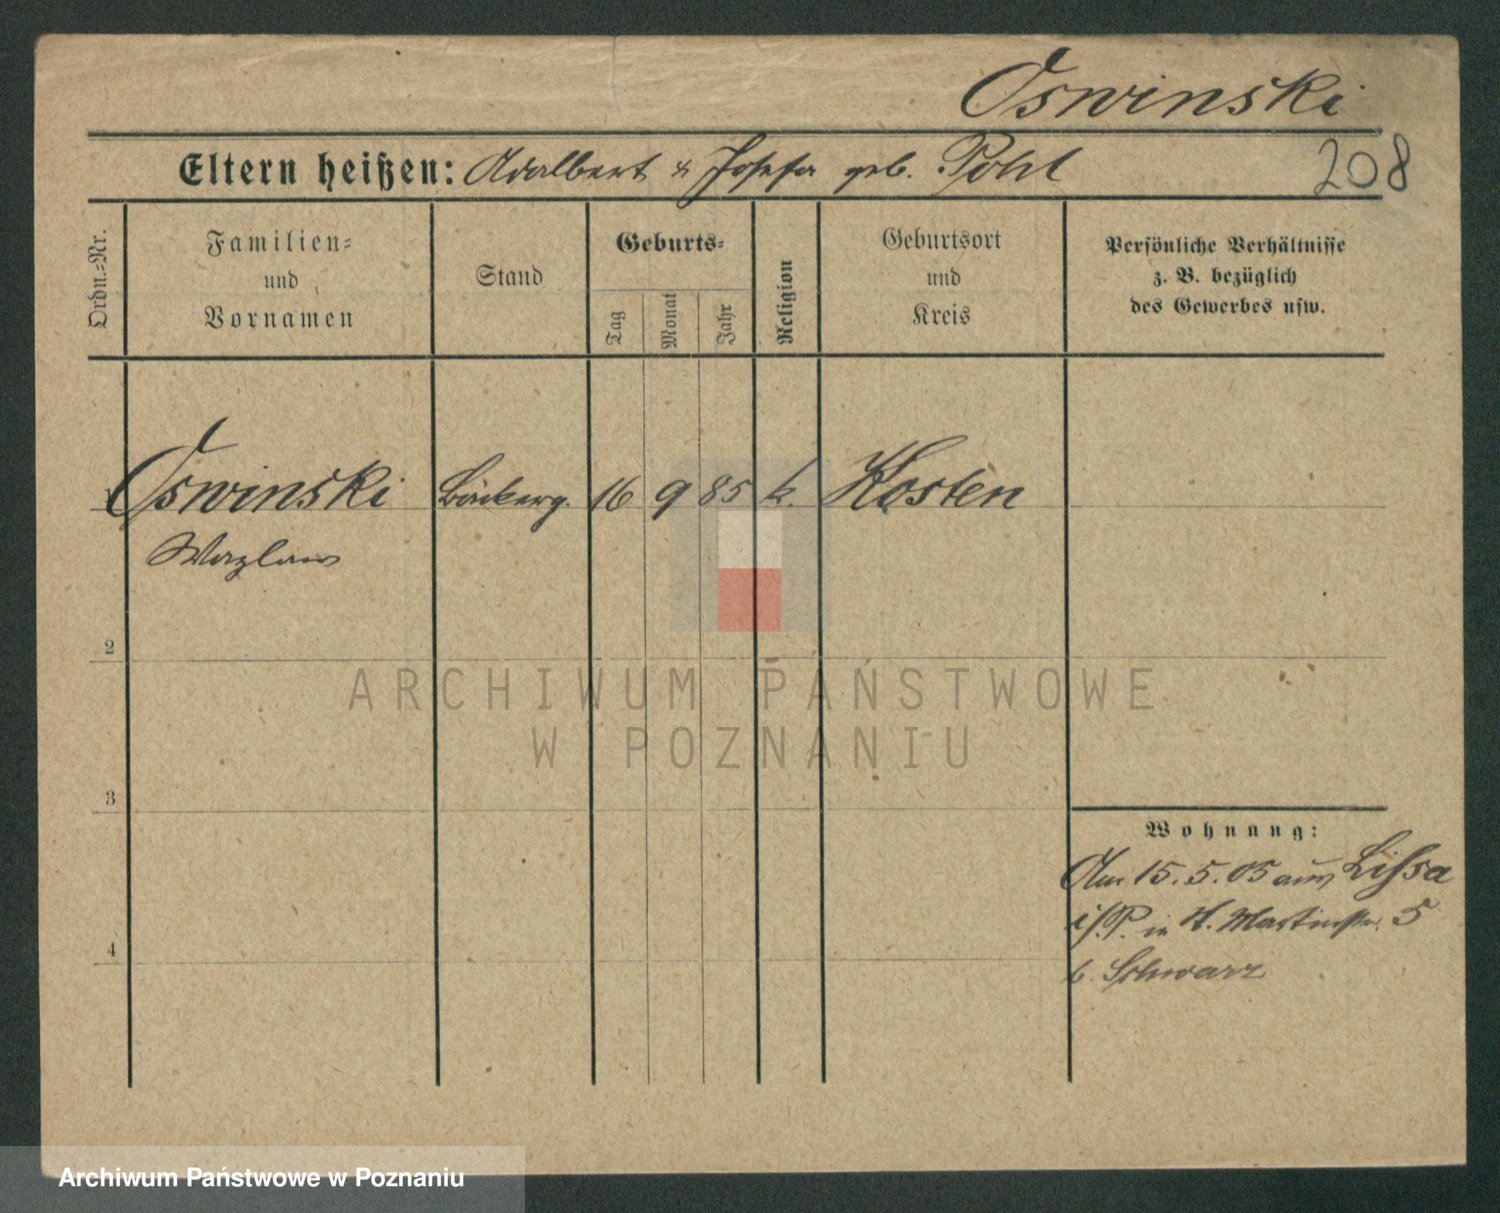 Oswinski
208
Eltern heißen: Adalbert & Josefa geb. Pohl
Ordn.=Nr.
Familien=
und
Vornamen
Stand
Geburts=
Tag
Monat
Jahr
Religion
Geburtsort
und
Kreis
Persönliche Verhältnisse
z. B. bezüglich
des Gewerbes usw.
1 Oswinski Bäckerg. 16 9 85 k. Kosten
Wazlaw
2
ARCHIWUM PAŃSTWOWE
W POZNANIU
3
Wohnung:
Am 15.5.05 aus Lissa
i/P. in St. Martinstr. 5
4
b. Schwarz
Archiwum Państwowe w Poznaniu